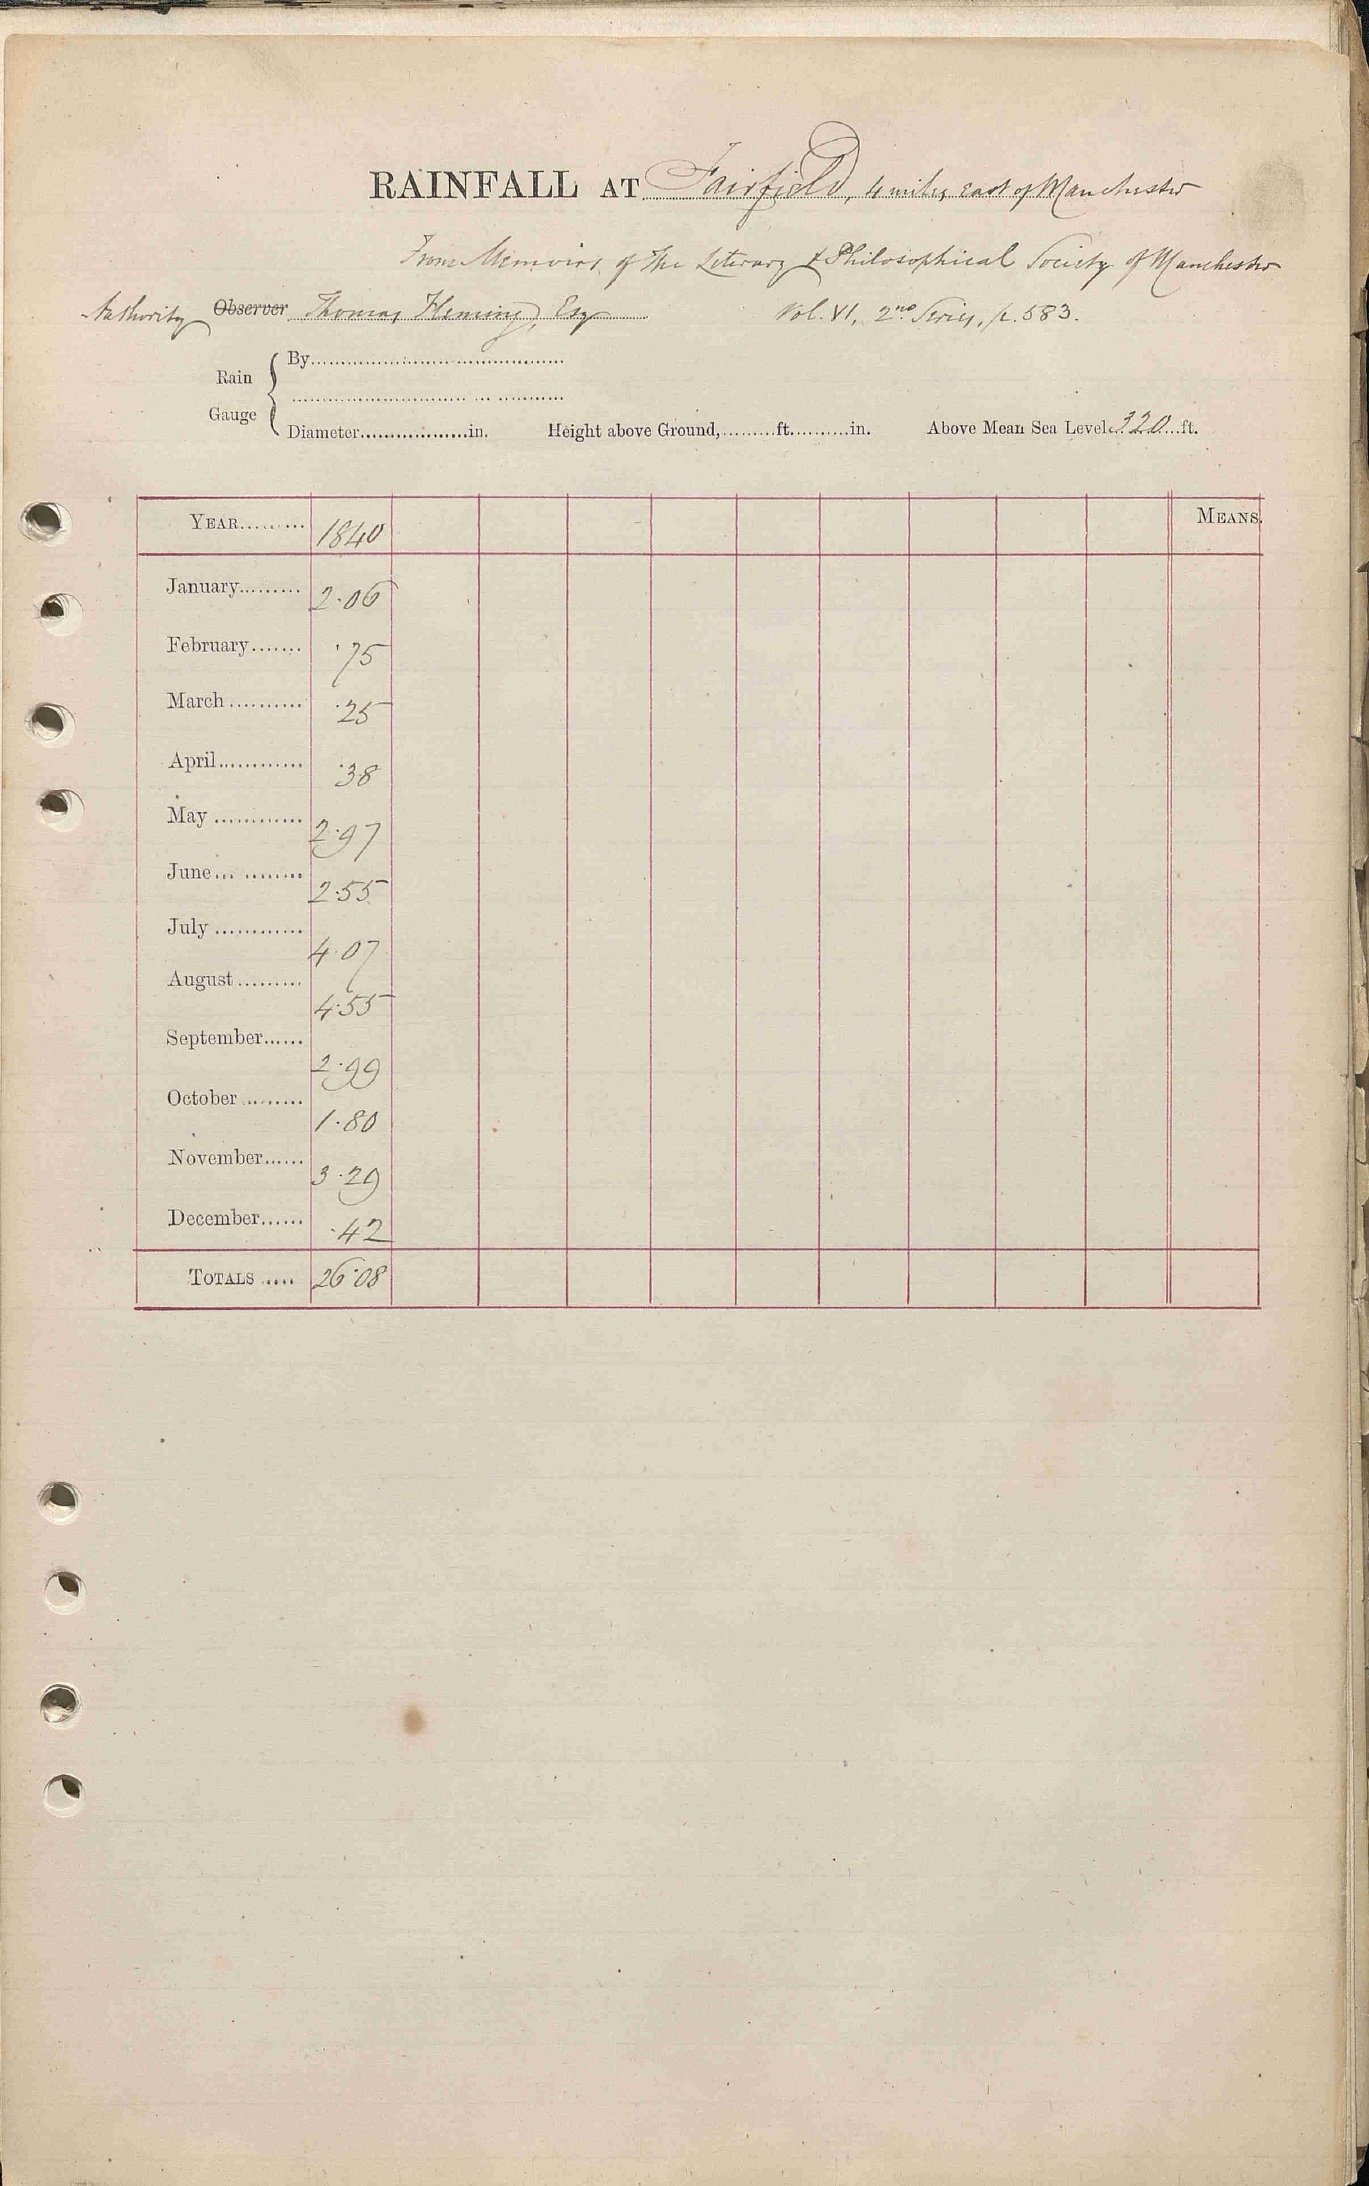 RAINFALL AT Fairfield, 4 miles east of Manchester
From Memoirs of the Literary & Philosophical Society of Manchester
Authority Observer Thomas Fleming, Esq Vol. VI, 2nd Series, p. 583.
By
Rain
Gauge
Diameter in. Height above Ground, ft. in. Above Mean Sea Level 320 ft.
YEAR 1840 MEANS.
January 2.06
February .75
March .25
April .38
May 2.97
June 2.55
July 4.07
August 4.55
September 2.99
October 1.80
November 3.29
December .42
TOTALS 26.08